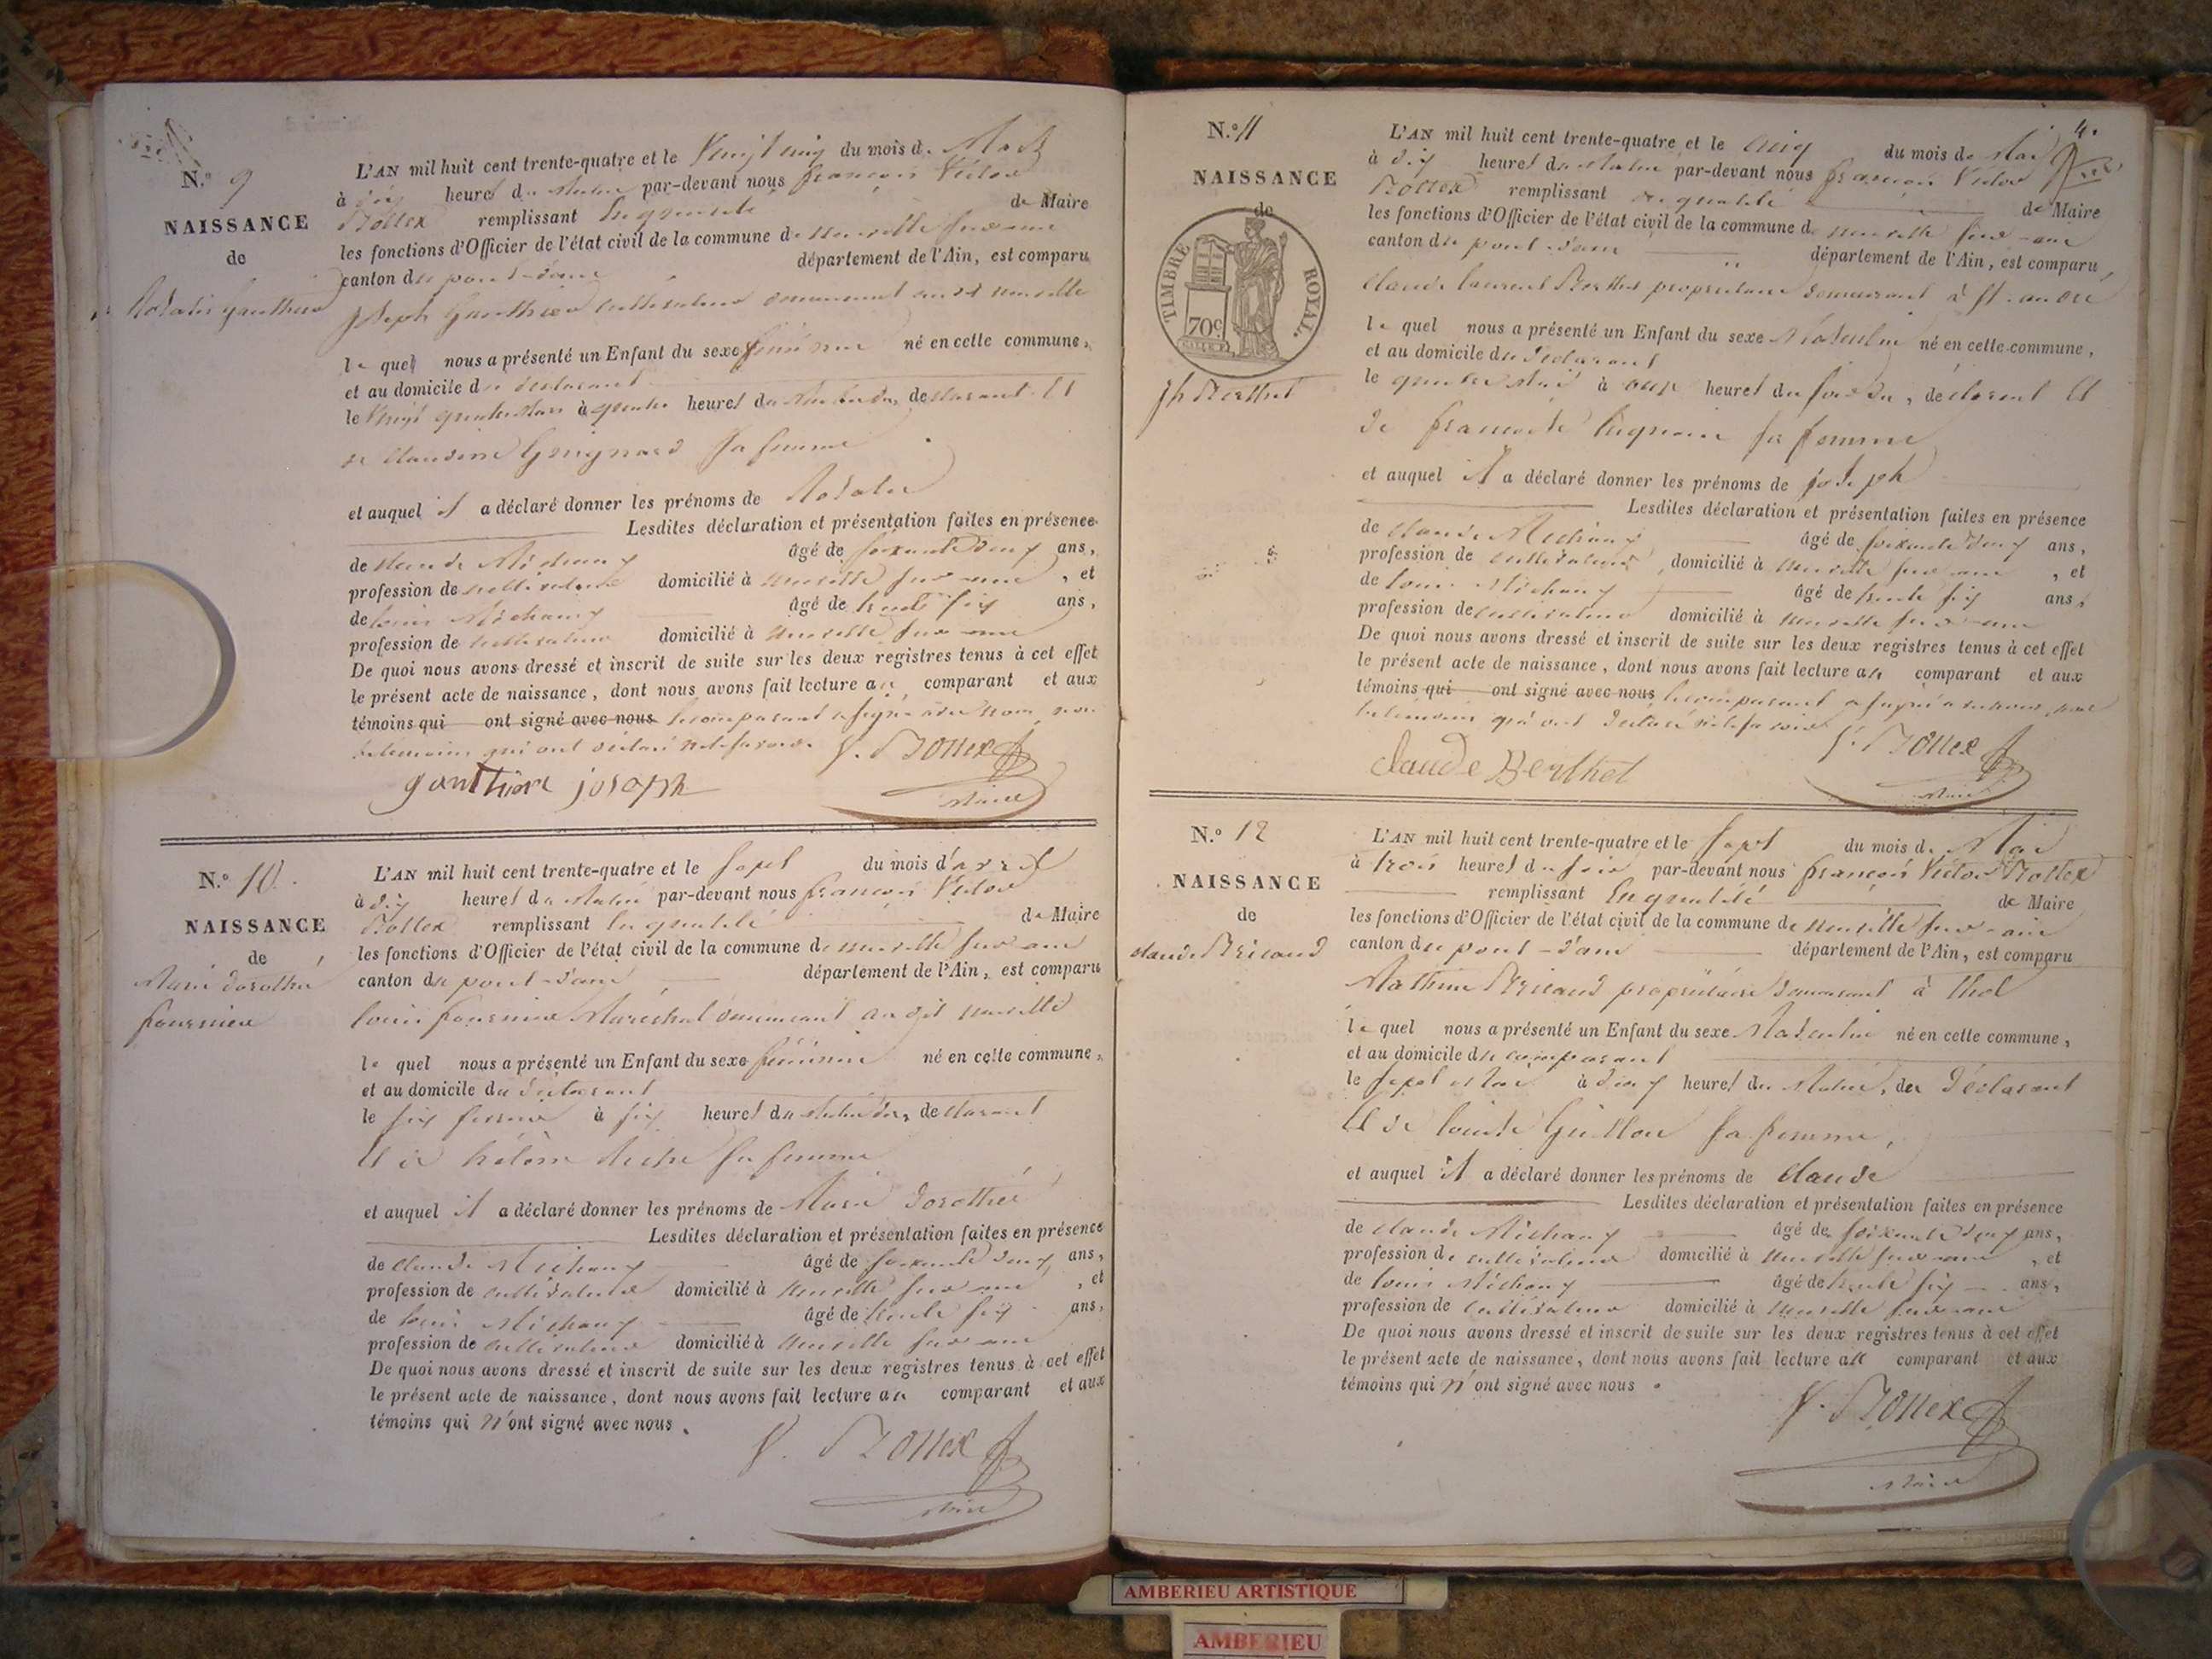 N.o 9
NAISSANCE
de
L'AN mil huit cent trente-quatre et le Vingt cinq du mois de Mars
à dix heures du Matin par-devant nous françois Victor
Bottex remplissant En qualité de Maire
les fonctions d'Officier de l'état civil de la commune de neuville sur ain
canton du pont-d'ain département de l'Ain, est comparu
Joseph Gauthier cultivateur demeurant au dit neuville
le quel nous a présenté un Enfant du sexe féminin né en cette commune,
et au domicile du déclarant
le Vingt quatre Mars à quatre heures du Matin du, déclarant Et
de Claudine Guignard sa femme
et auquel il a déclaré donner les prénoms de
Lesdites déclaration et présentation faites en présence
de Claude Michaux âgé de soixante deux ans,
profession de cultivateur domicilié à neuville sur ain, et
de louis Michaux âgé de trente six ans,
profession de cultivateur domicilié à neuville sur ain
De quoi nous avons dressé et inscrit de suite sur les deux registres tenus à cet effet
le présent acte de naissance, dont nous avons fait lecture au comparant et aux
témoins qui ont signé avec nous le comparant a signé avec nous, non
les témoins qui ont déclaré ne le savoir. V. Bottex
gauthier joseph
Maire
N.o 10.
NAISSANCE
de
Marie dorothée
fournier
L'AN mil huit cent trente-quatre et le sept du mois d'avril
à dix heures du Matin par-devant nous françois Victor
Bottex remplissant En qualité de Maire
les fonctions d'Officier de l'état civil de la commune de neuville sur ain
canton du pont-d'ain département de l'Ain, est comparu
louis fournier Maréchal demeurant au dit neuville
le quel nous a présenté un Enfant du sexe féminin né en cette commune,
et au domicile du déclarant
le six à six heures du Matin du, déclarant
Et de hélène sa femme
et auquel il a déclaré donner les prénoms de Marie Dorothée
Lesdites déclaration et présentation faites en présence
de Claude Michaux âgé de soixante deux ans,
profession de cultivateur domicilié à neuville sur ain, et
de louis Michaux âgé de trente six ans,
profession de cultivateur domicilié à neuville sur ain
De quoi nous avons dressé et inscrit de suite sur les deux registres tenus à cet effet
le présent acte de naissance, dont nous avons fait lecture au comparant et aux
témoins qui n'ont signé avec nous.
V. Bottex
Maire
4.
N.o 11
NAISSANCE
de
TIMBRE ROYAL.
70c
Jh Berthet
L'AN mil huit cent trente-quatre et le cinq du mois de Mai
à dix heures du Matin par-devant nous françois Victor
Bottex remplissant En qualité de Maire
les fonctions d'Officier de l'état civil de la commune de neuville sur-ain
canton du pont-d'ain département de l'Ain, est comparu
claude laurent Berthet propriétaire demeurant à St. andré
le quel nous a présenté un Enfant du sexe Masculin né en cette commune,
et au domicile du Déclarant
le quatre Mai à onze heures du soir du, déclarant Et
de sa femme
et auquel il a déclaré donner les prénoms de joseph
Lesdites déclaration et présentation faites en présence
de Claude Michaux âgé de soixante deux ans,
profession de cultivateur, domicilié à neuville sur ain, et
de louis Michaux âgé de trente six ans,
profession de cultivateur domicilié à neuville sur ain
De quoi nous avons dressé et inscrit de suite sur les deux registres tenus à cet effet
le présent acte de naissance, dont nous avons fait lecture au comparant et aux
témoins qui ont signé avec nous le comparant a signé avec nous, non
les témoins qui ont déclaré ne le savoir V. Bottex
Claude Berthet
Maire
N.o 12
NAISSANCE
de
claude Bricaud
L'AN mil huit cent trente-quatre et le sept du mois de Mai
à trois heures du soir par-devant nous françois Victor Bottex
remplissant En qualité de Maire
les fonctions d'Officier de l'état civil de la commune de neuville sur-ain
canton du pont-d'ain département de l'Ain, est comparu
Bricaud propriétaire demeurant à thol
le quel nous a présenté un Enfant du sexe Masculin né en cette commune,
et au domicile du comparant
le sept Mai à deux heures du Matin, du Déclarant
Et de louise sa femme,
et auquel il a déclaré donner les prénoms de claude
Lesdites déclaration et présentation faites en présence
de claude Michaux âgé de soixante deux ans,
profession de cultivateur domicilié à neuville sur ain, et
de louis Michaux âgé de trente six ans,
profession de cultivateur domicilié à neuville sur ain
De quoi nous avons dressé et inscrit de suite sur les deux registres tenus à cet effet
le présent acte de naissance, dont nous avons fait lecture au comparant et aux
témoins qui n'ont signé avec nous.
V. Bottex
Maire
AMBERIEU ARTISTIQUE
AMBERIEU